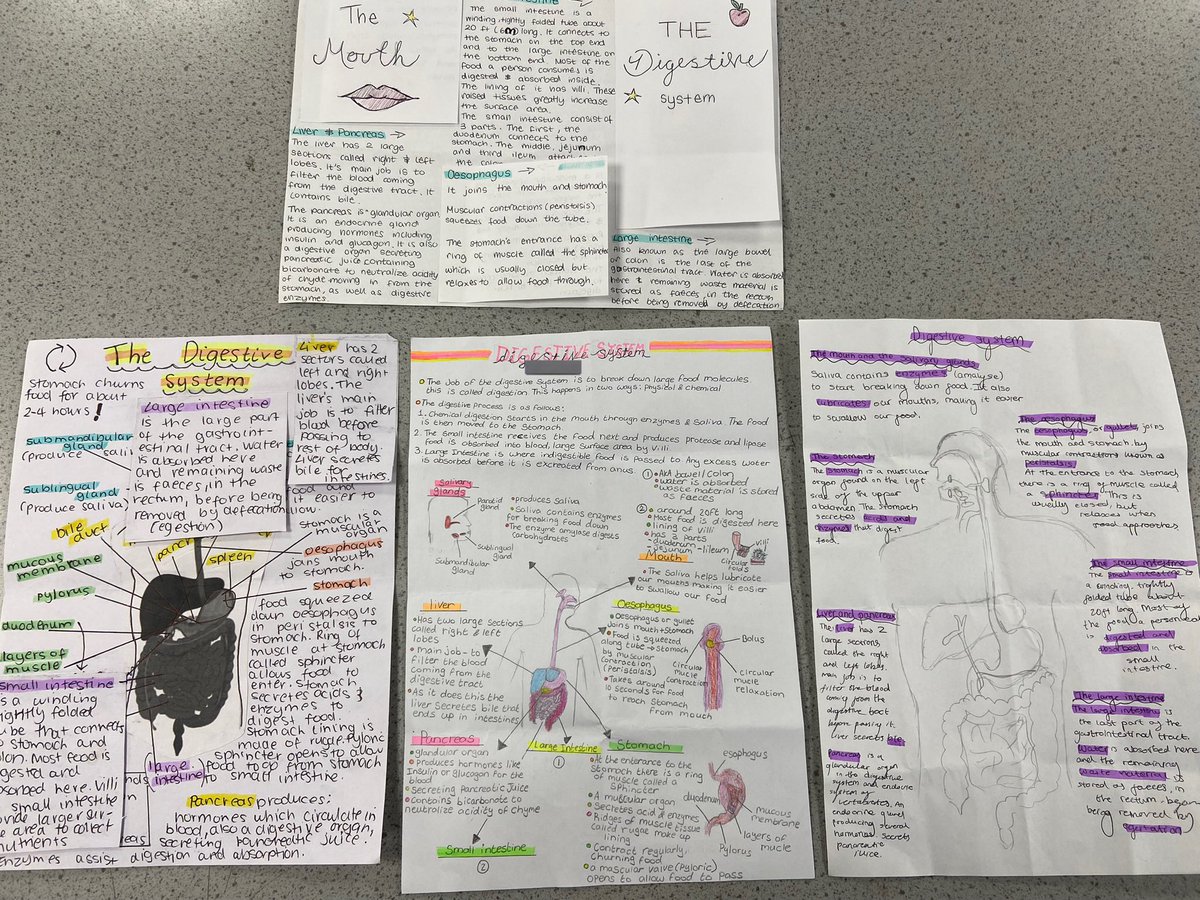 The
Mouth
The small intestine is a
winding, tightly folded tube about
20 ft (6m) long. It connects to
the stomach on the top end
and to the large intestine on
the bottom end. Most of the
food a person consumes is
digested & absorbed inside.
The lining of it has villi. These
raised tissues greatly increase
the surface area.
The small intestine consist of
3 parts. The first, the
duodenum connects to the
stomach. The middle, jejunum
and third ileum
THE
Digestive
system
Liver & Pancreas →
The liver has 2 large
sections called right & left
lobes. It's main job is to
filter the blood coming
from the digestive tract. It
contains bile.
The pancreas is glandular organ
It is an endocrine gland
producing hormones including
insulin and glucagon. It is also
a digestive organ secreting
pancreatic juice containing
bicarbonate to neutralize acidity
of chyde moving in from the
stomach, as well as digestive
enzymes.
Oesophagus →
It joins the mouth and stomach
Muscular contractions (peristalsis)
squeezes food down the tube.
The stomach's entrance has a
ring of muscle called the sphinter
which is usually closed but
relaxes to allow food through.
Large intestine →
Also known as the large bowel
or colon is the last of the
gastrointestinal tract. Water is absorbed
here & remaining waste material is
stored as faeces, in the rectum
before being removed by defecation
The Digestive
System
stomach churns
food for about
2-4 hours!
Liver has 2
sectors called
left and right
lobes. The
liver's main
job is to filter
blood before
passing to
rest of body.
Liver secretes
bile for
intestines.
Large intestine
is the large part
of the gastroint-
estinal tract. Water
is absorbed here
and remaining waste
is faeces, in the
rectum, before being
removed by defecation
(egestion)
submandibular
gland
(produce saliv
Sublingual
gland
(produce saliva)
food and
it easier to
swallow.
bile
duct
spleen
mucous
membrane
pylorus
duodenum
layers of
muscle
stomach is a
muscular
organ
oesophagus
joins mouth
to stomach.
stomach
food squeezed
down oesophagus
in peristalsis to
stomach. Ring of
muscle at stomach
called sphincter
allows food to
enter. Stomach
secretes acids &
enzymes to
digest food.
Stomach lining is
made of rugae. Pyloric
sphincter opens to allow
food to go from stomach
to small intestine.
Small intestine
is a winding
tightly folded
tube that connects
to stomach and
colon. Most food is
digested and
absorbed here. Villi
small intestine
larger sur-
area to collect
nutrients
large
intestine
Pancreas produces:
hormones which circulate in
blood, also a digestive organ,
secreting pancreatic juice.
enzymes assist digestion and absorption.
DIGESTIVE SYSTEM
Digestive system
The Job of the digestive system is to break down large food molecules
this is called digestion This happens in two ways: physical & chemical
The digestive process is as follows:
1. Chemical digestion starts in the mouth through enzymes & saliva. The food
is then moved to the stomach
2. The small intestine receives the food next and produces protease and lipase
food is absorbed into blood, large surface area by villi.
3. Large Intestine is where indigestible food is passed to. Any excess water
is absorbed before it is excreated from anus
① AKA bowel/colon
water is absorbed
waste material is stored
as faeces
Salivary
glands
Parotid
gland
Sublingual
gland
Submandibular
gland
produces saliva
Saliva contains enzymes
for breaking food down
The enzyme amylase digests
carbohydrates
② around 20ft long
Most food is digested here
lining of villi
has 3 parts
duodenum
-jejunum -ileum
villi
circular
folds
Mouth
The Saliva helps lubricate
our mouths making it easier
to swallow our food
liver
Has two large sections
called right & left
lobes
Main job- to
filter the blood
coming from the
digestive tract
As it does this the
liver secretes bile that
ends up in intestines
Oesophagus
Oesophagus or gullet
joins mouth + stomach
Food is squeezed
along tube → stomach
by muscular
contraction
(Peristalsis)
Takes around
10 seconds for food
to reach stomach
from mouth
Bolus
circular
mucle
contraction
circular
mucle
relaxation
Pancreas
glandular organ
produces hormones like
Insulin or glucagon for the
blood
Secreting pancreatic juice
contains bicarbonate to
neutralize acidity of chyme
Large Intestine
①
Small intestine
②
Stomach
At the entrance to the
stomach there is a ring
of muscle called a
sphincter
A muscular organ
secretes acid & enzymes
Ridges of muscle tissue
called rugae make up
lining
Contract regularly.
Churning food
a mascular valve (Pyloric)
opens to allow food to pass
esophagus
duodenum
mucous
membrane
layers of
mucle
Pylorus
Digestive system
The mouth and the Salivary glands
Saliva contains enzymes (amalyse)
to start breaking down food. It also
lubricates our mouths, making it easier
to swallow our food.
The stomach
The stomach is a muscular
organ found on the left
side of the upper
abdomen. The stomach
secretes acids and
enzymes that digest
food.
Liver and pancreas
The liver has 2
large sections
called the right
and left lobes.
main job is to
filter the blood
coming from the
digestive tract
before passing it.
liver secretes bile
Pancreas is a
glandular organ
in the digestive
system and endocrine
system of
vertebrates. An
endocrine gland
producing several
hormones. secrets
pancreatic
juice.
The oesophagus
The oesophagus, or gullets joins
the mouth and stomach, by
muscular contractions known as
peristalsis
At the entrance to the stomach
there is a ring of muscle called
a sphincter. This is
usually closed, but
relaxes when
food approaches
The small intestine
The small intestine is
a winding, tightly
folded tube about
20ft long. Most of
the food a person eats is
digested and
absorbed in the
small
intestine.
The large intestine
The large intestine is
the last part of the
gastrointestinal tract.
Water is absorbed here
and the remaining
waste material is
stored as faeces, in
the rectum, before
being removed by